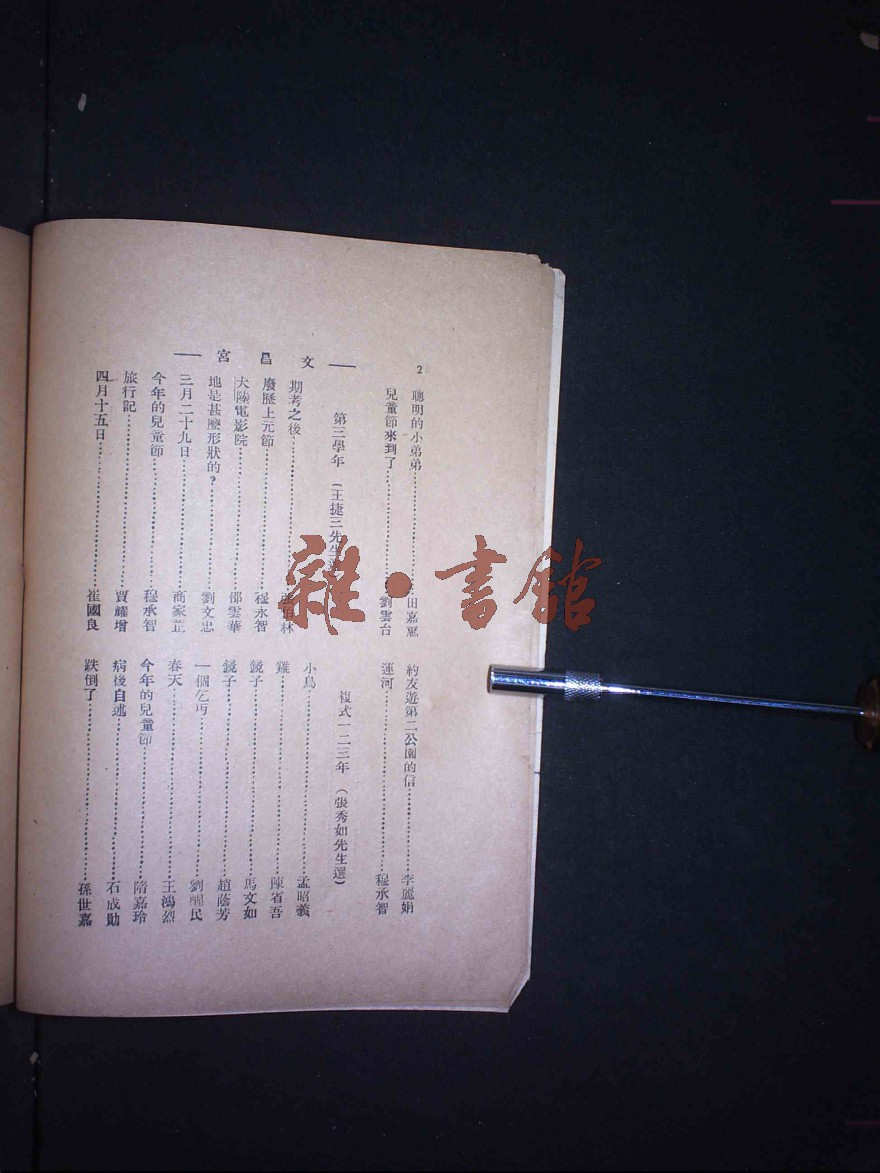 2
— 文昌宮 —
聰明的小弟弟……田嘉
兒童節來到了……劉雲台
第三學年 (王捷三先生選)
期考之後……林
廢歷上元節……程永智
大陸電影院……邵雲華
地是甚麽形狀的？……劉文忠
三月二十九日……商家芷
今年的兒童節……程承智
旅行記……賈耀增
四月十五日……崔國良
約友遊第二公園的信……李麗娟
運河……程承智
複式一二三年 (張秀如先生選)
小鳥……孟昭義
雞……陳省吾
鏡子……馬文如
鏡子……趙蔭芳
一個乞丐……劉醒民
春天……王鴻烈
今年的兒童節……隋嘉玲
病後自述……石成勛
跌倒了……孫世嘉
雜·書館